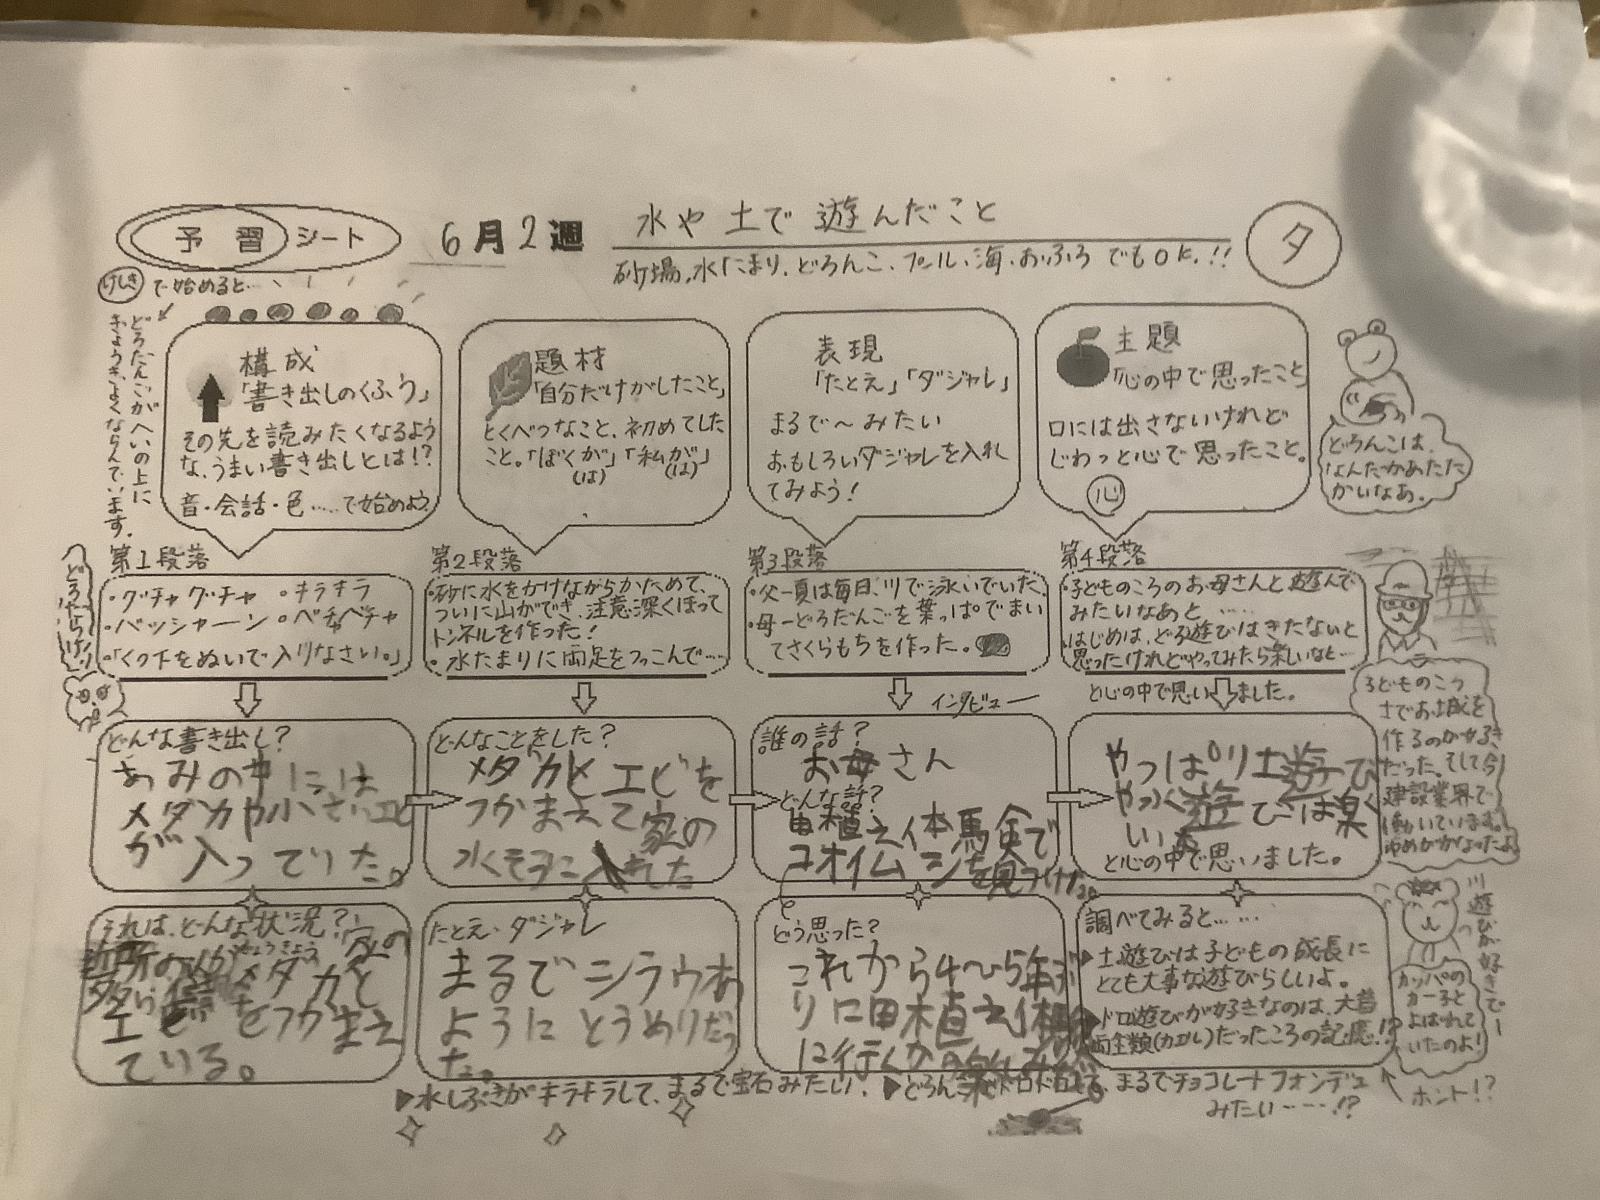 予習シート
6月2週
水や土で遊んだこと
砂場.水たまり.どろんこ.プール.海.おふろ でもOK.!!
タ
けしきで始めると…
どろだんごがへいの上に
きょうぎよくならんでいます。
構成
「書き出しのくふう」
その先を読みたくなるよう
な、うまい書き出しとは!?
音・会話・色……で始めよう。
題材
「自分だけがしたこと」
とくべつなこと、初めてした
こと。「ぼくが」「私が」
(は) (は)
表現
「たとえ」「ダジャレ」
まるで〜みたい
おもしろいダジャレを入れ
てみよう!
主題
「心の中で思ったこと」
口には出さないけれど
じわっと心で思ったこと。
心
どろんこは、
なんだかあたた
かいなあ。
第1段落
・グチャグチャ ・キラキラ
・バッシャーン ・ペチャペチャ
・「くつ下をぬいで入りなさい。」
第2段落
・砂に水をかけながらかためて、
ついに山ができ、注意深くほって
トンネルを作った!
・水たまりに両足をつっこんで……
第3段落
・父ー夏は毎日、川で泳いでいた。
・母ーどろだんごを葉っぱでまい
てさくらもちを作った。
第4段落
・子どものころのお母さんと遊んで
みたいなあと……
・はじめは、どろ遊びはきたないと
思ったけれどやってみたら楽しいなと…
と心の中で思いました。
インタビュー
どんな書き出し?
あみの中には
メダカや小さいエビ
が入っていた。
どんなことをした?
メダカとエビを
つかまえて家の
水そうに入れた
誰の話?
お母さん
どんな話?
田植え体馬倹で
コオイムシを見つけた。
やっぱり土遊び
や水遊びは楽
しいな
と心の中で思いました。
子どものころ
すでお城を
作るのが好き
だった。そして今
建設業界で
働いています。
それは、どんな状況?
家の
メダカと
エビをつかまえ
ている。
たとえ・ダジャレ
まるでシラウオ
ようにとうめいだっ
た。
どう思った?
これから4〜5年ぶ
りに田植え体
に行くから楽しみ
調べてみると……
▶土遊びは子どもの成長に
とても大事な遊びらしいよ。
▶ドロ遊びが好きなのは、大昔
両生類(カエル)だったころの記憶!?
川遊びが好きでー
カッパの
カー子と
よばれて
いたのよ!
ホント!?
▶水しぶきがキラキラして、まるで宝石みたい!
▶どろんこがドロドロして、まるでチョコレートフォンデュ
みたい……!?